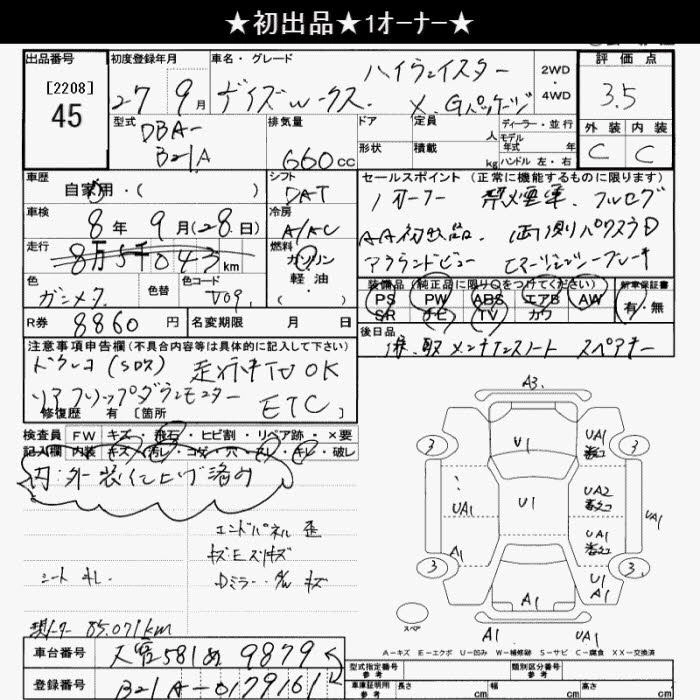 ★初出品★1オーナー★
出品番号 初度登録年月 車名・グレード 2WD・4WD 評価点
[2208] 45 27 9月 デイズルークス ハイウェイスター X Gパッケージ 3.5
型式 DBA-B21A 排気量 660cc ドア 形状 定員 人 積載 kg ディーラー・並行 モデル年式 年 ハンドル 左・右 外装 C 内装 C
車歴 自家用・( ) シフト DAT セールスポイント (正常に機能するものに限ります)
1オーナー 禁煙車 フルセグ
車検 8年9月(28日) 冷房 A/AC AA初出品 両側パワスラD
走行 8万5千043km 燃料 ガソリン 軽油 ( ) アラウンドビュー エマージェンシーブレーキ
色 ガンメタ 色替 色コード 装備品(純正品に限り○をつけてください) 新車保証書
PS PW ABS エアB AW 有・無
SR ナビ TV カワ
R券 8860円 名変期限 月 日 後日品
取 メンテナンスノート スペアキー
注意事項申告欄(不具合内容等は具体的に記入して下さい)
ドラレコ 走行中TV OK
リアフリップダウンモニター ETC
修復歴 有[箇所 ]
検査員 FW キズ・飛石・ヒビ割・リペア跡・×要
記入欄 内装 キズ・汚レ・コゲ・穴・スレ・キレ・破レ
内外装仕上げ済み
エンドパネル 歪
キズEズリキズ
シート キレ Dミラー キズ
現メーター 85.071km
A3
U1
3 3
UA1
U1
UA2
UA1 UA1 UA1
A1
3 3
U1
A1
A1
A1 A1
スペア
A-キズ E-エクボ U-凹み W-補修跡 S-サビ C-腐食 XX-交換済
車台番号 581 9879
登録番号 B21A-0179161
型式指定番号 参考 類別区分番号 参考
車庫証明用 参考 長さ cm 幅 cm 高さ cm